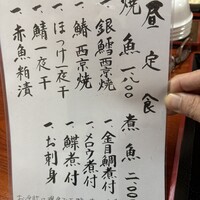 昼定食
焼魚 一、八〇〇
一、銀鱈西京焼
一、鰆西京焼
一、ほっけ一夜干
一、鯖一夜干
一、赤魚粕漬
煮魚 二、〇〇
一、金目鯛煮付
一、メロウ煮付
一、鰈煮付
一、お刺身